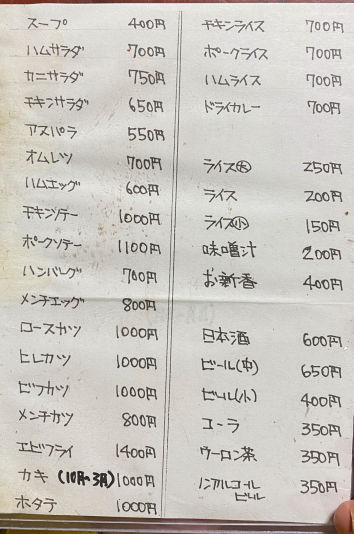 スープ 400円
ハムサラダ 700円
カニサラダ 750円
チキンサラダ 650円
アスパラ 550円
オムレツ 700円
ハムエッグ 600円
チキンソテー 1000円
ポークソテー 1100円
ハンバーグ 700円
メンチエッグ 800円
ロースカツ 1000円
ヒレカツ 1000円
ビフカツ 1000円
メンチカツ 800円
エビフライ 1400円
カキ (10月~3月) 1000円
ホタテ 1000円
チキンライス 700円
ポークライス 700円
ハムライス 700円
ドライカレー 700円
ライス大 250円
ライス 200円
ライス小 150円
味噌汁 200円
お新香 400円
日本酒 600円
ビール(中) 650円
ビール(小) 400円
コーラ 350円
ウーロン茶 350円
ノンアルコール
ビール 350円